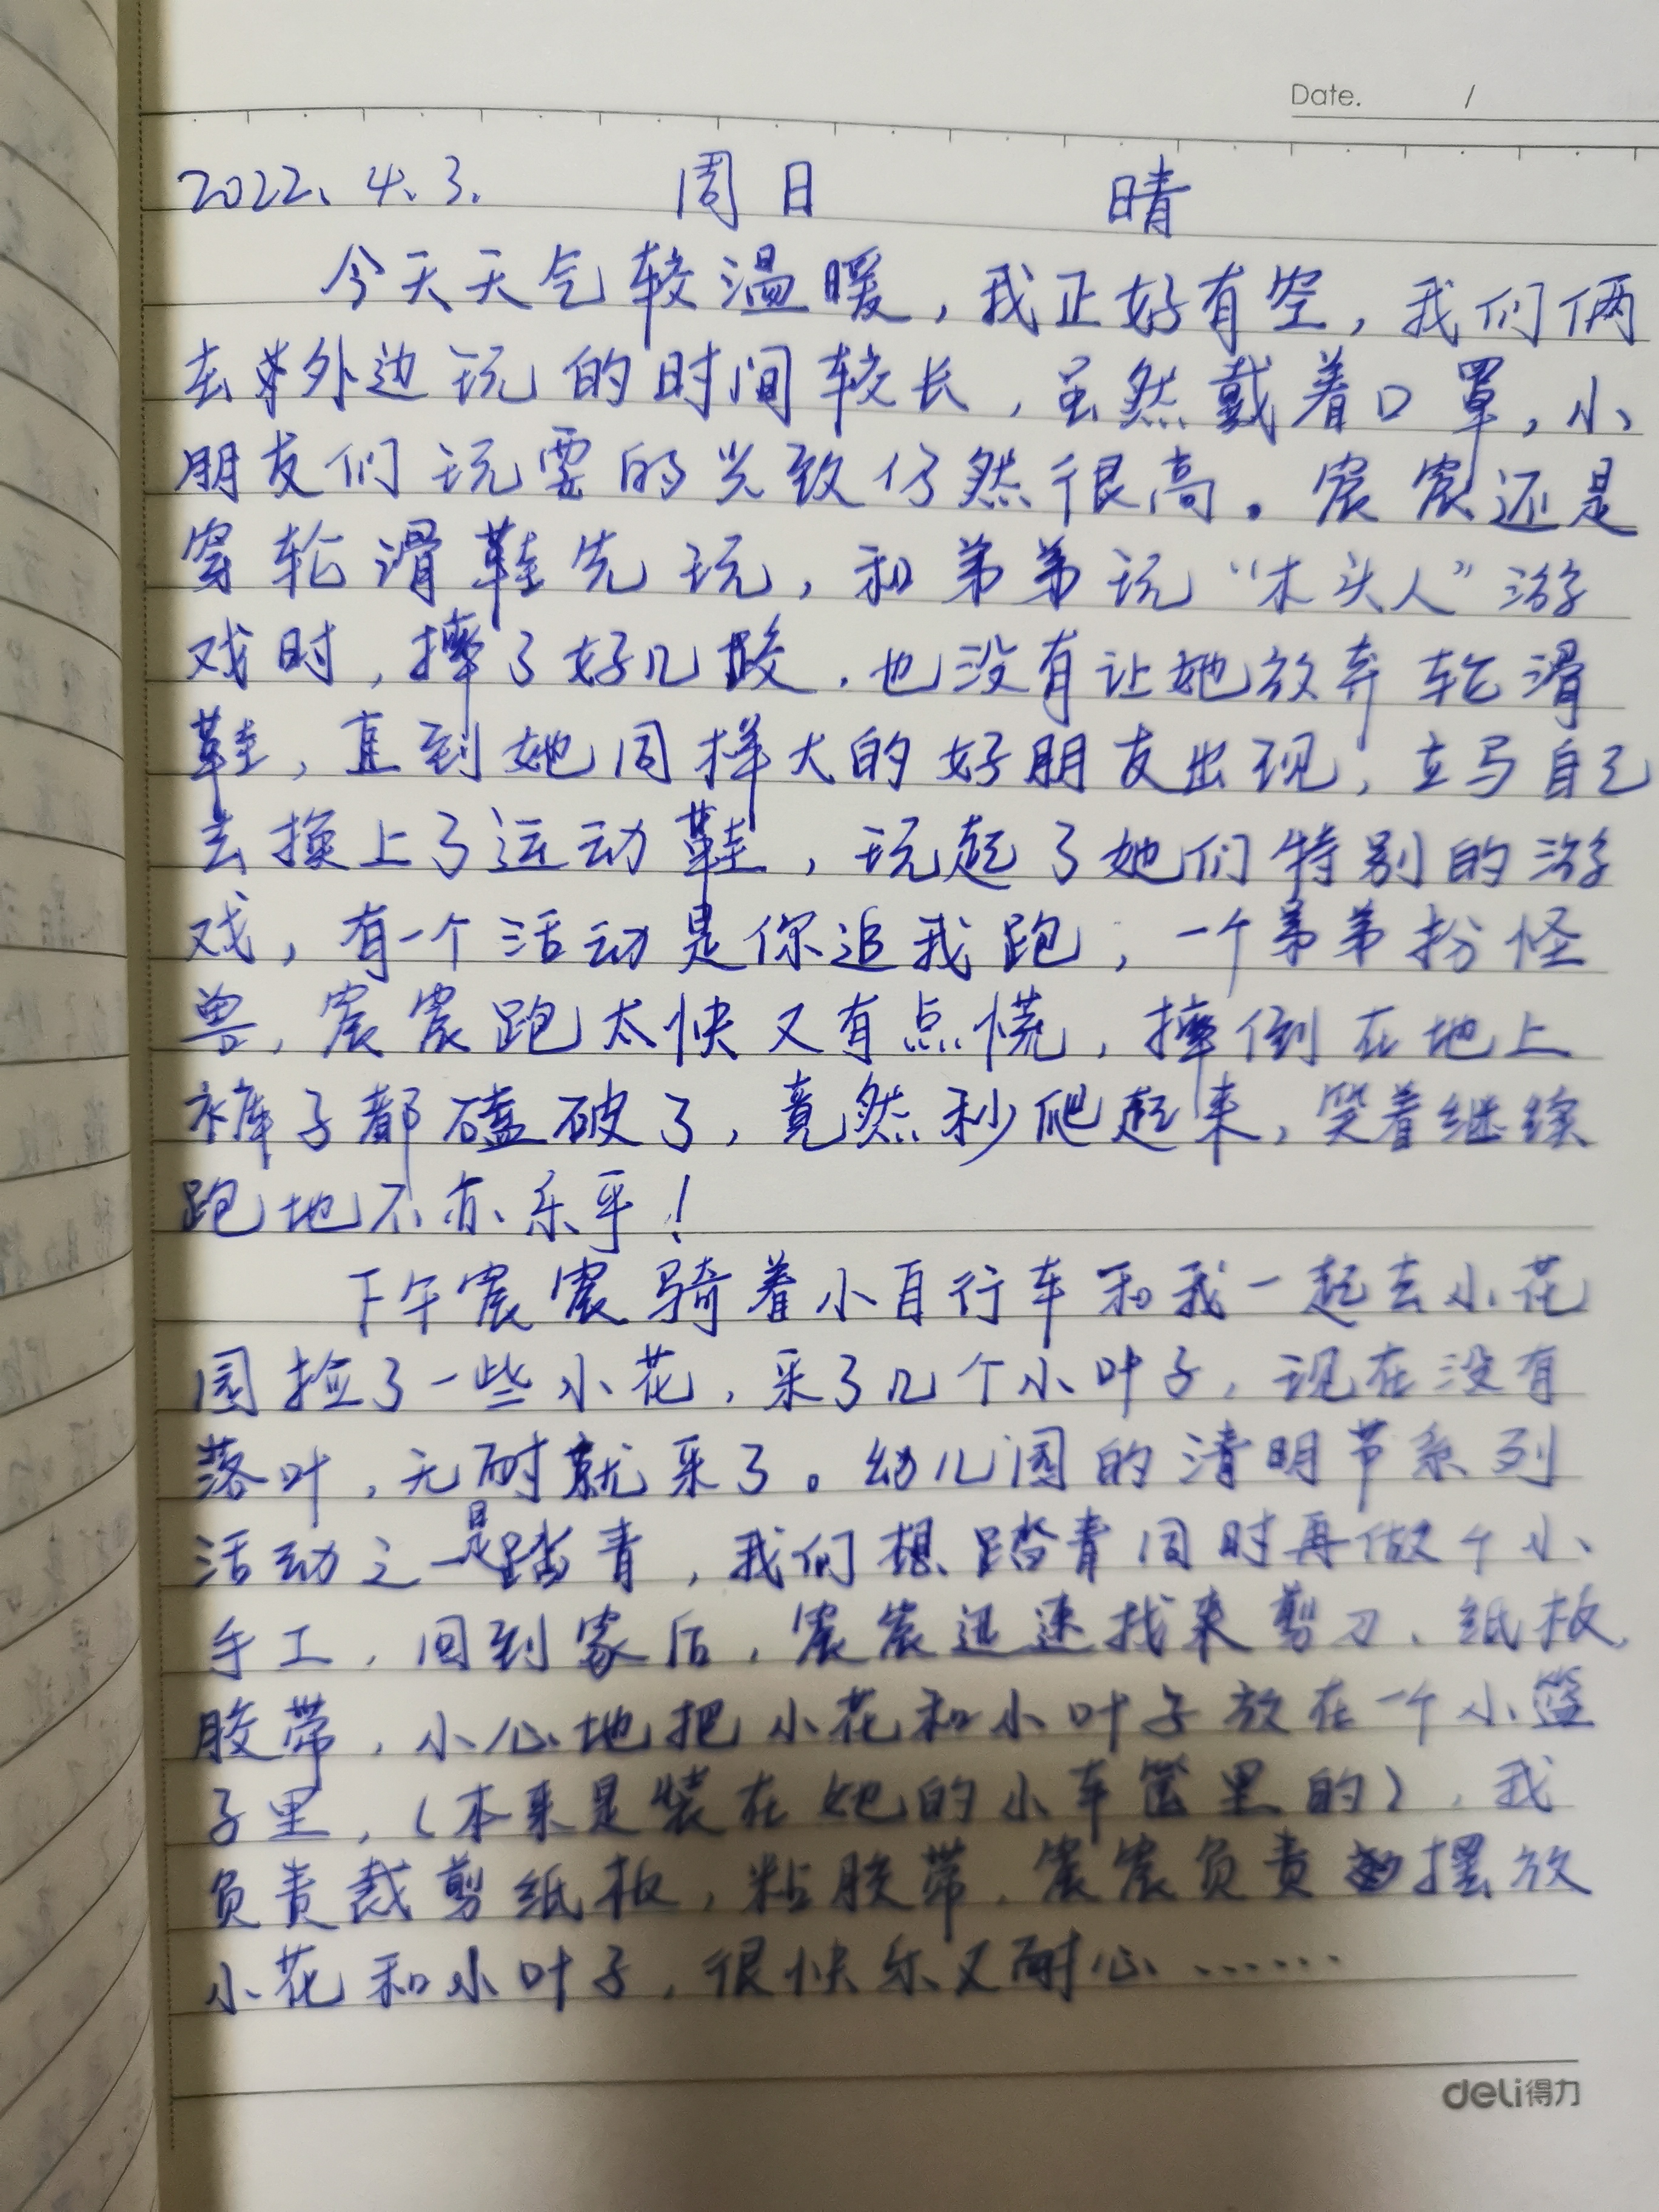 Date. /
2022.4.3. 周日 晴
今天天气较温暖，我正好有空，我们俩
去外边玩的时间较长，虽然戴着口罩，小
朋友们玩耍的兴致仍然很高。宸宸还是
穿轮滑鞋先玩，和弟弟玩“木头人”游
戏时，摔了好几跤，也没有让她放弃轮滑
鞋，直到她同样大的好朋友出现，立马自己
去换上了运动鞋，玩起了她们特别的游
戏，有一个活动是你追我跑，一个弟弟扮怪
兽，宸宸跑太快又有点慌，摔倒在地上
裤子都磕破了，竟然秒爬起来，笑着继续
跑地不亦乐乎！
下午宸宸骑着小自行车和我一起去小花
园捡了一些小花，采了几个小叶子，现在没有
落叶，无耐就采了。幼儿园的清明节系列
活动之一是踏青，我们想踏青同时再做个小
手工，回到家后，宸宸迅速找来剪刀、纸板、
胶带，小心地把小花和小叶子放在一个小篮
子里，（本来是装在她的小车筐里的），我
负责裁剪纸板，粘胶带，宸宸负责摆放
小花和小叶子，很快乐又耐心……
deli得力